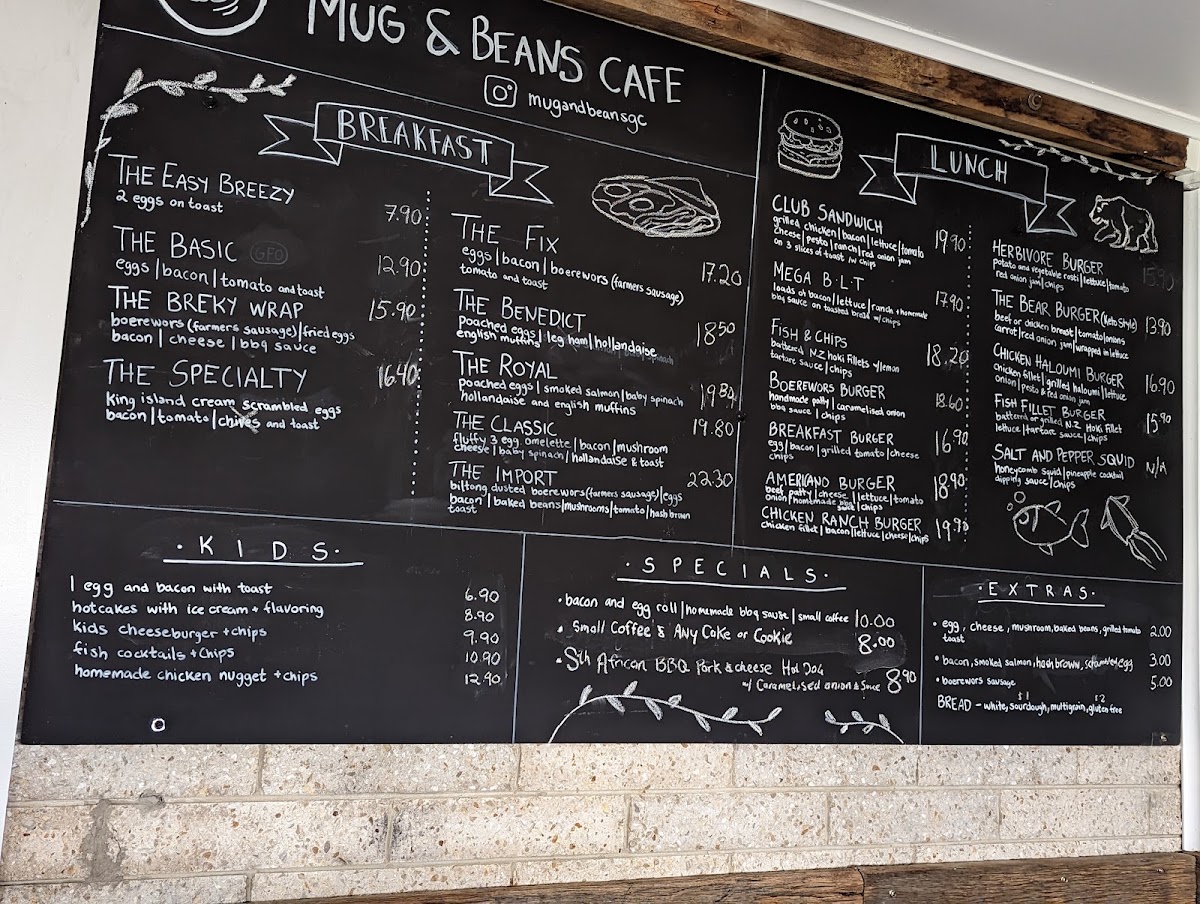 MUG & BEANS CAFE
mugandbeansgc
BREAKFAST
THE EASY BREEZY 7.90
2 eggs on toast
THE BASIC GFO 12.90
eggs | bacon | tomato and toast
THE BREKY WRAP 15.90
boerewors (farmers sausage) | fried eggs
bacon | cheese | bbq sauce
THE SPECIALTY 16.40
King island cream scrambled eggs
bacon | tomato | chives and toast
THE FIX 17.20
eggs | bacon | boerewors (farmers sausage)
tomato and toast
THE BENEDICT 18.50
poached eggs | leg ham | hollandaise
english muffins
THE ROYAL
poached eggs | smoked salmon | baby spinach
hollandaise and english muffins
THE CLASSIC 19.80
fluffy 3 egg omelette | bacon | mushroom
cheese | baby spinach | hollandaise & toast
THE IMPORT 22.30
biltong dusted boerewors (farmers sausage) | eggs
bacon | baked beans | mushrooms | tomato | hash brown
toast
LUNCH
CLUB SANDWICH 19.90
grilled chicken | bacon | lettuce | tomato
cheese | pesto | ranch | red onion jam
on 3 slices of toast w chips
MEGA B·L·T 17.90
loads of bacon | lettuce | ranch + homemade
bbq sauce on toasted bread w/ chips
FISH & CHIPS 18.20
battered N.Z hoki fillets w/lemon
tartare sauce | chips
BOEREWORS BURGER 18.60
handmade patty | caramelised onion
bbq sauce | chips
BREAKFAST BURGER 16.90
egg | bacon | grilled tomato | cheese
chips
AMERICANO BURGER 18.90
beef patty | cheese | lettuce | tomato
onion | homemade bbq sauce | chips
CHICKEN RANCH BURGER 19.90
chicken fillet | bacon | lettuce | cheese | chips
HERBIVORE BURGER 15.90
potato and vegetable rosti | lettuce | tomato
red onion jam | chips
THE BEAR BURGER (Keto Style) 13.90
beef or chicken breast | tomato | onions
carrot | red onion jam | wrapped in lettuce
CHICKEN HALOUMI BURGER 16.90
chicken fillet | grilled haloumi | lettuce
onion | pesto & red onion jam
FISH FILLET BURGER 15.90
battered or grilled N.Z Hoki Fillet
lettuce | tartare sauce | chips
SALT AND PEPPER SQUID N/A
honeycomb squid | pineapple cocktail
dipping sauce | chips
· K I D S ·
1 egg and bacon with toast 6.90
hotcakes with ice cream + flavoring 8.90
kids cheeseburger + chips 9.90
fish cocktails + chips 10.90
homemade chicken nugget + chips 12.90
· S P E C I A L S ·
• bacon and egg roll | homemade bbq sauce | small coffee 10.00
• Small Coffee & Any Cake or Cookie 8.00
• Sth African BBQ Pork & cheese Hot Dog
w/ Caramelised onion & Sauce 8.90
· E X T R A S ·
• egg, cheese, mushroom, baked beans, grilled tomato 2.00
toast
• bacon, smoked salmon, hash brown, scrambled egg 3.00
• boerewors sausage 5.00
$1 $2
BREAD - white, sourdough, multigrain, gluten free